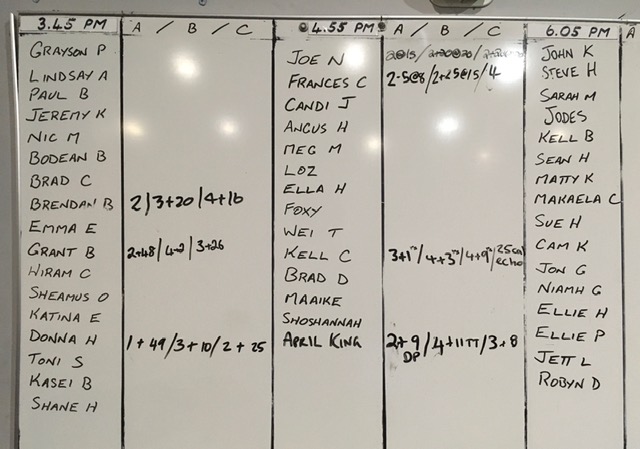 3.45 PM A / B / C
GRAYSON P
LINDSAY A
PAUL B
JEREMY K
NIC M
BODEAN B
BRAD C
BRENDAN B 2/3+20/4+16
EMMA E
GRANT B 2+48/4-2/3+26
HIRAM C
SHEAMUS O
KATINA E
DONNA H 1+49/3+10/2+25
TONI S
KASEI B
SHANE H
4.55 PM A / B / C
JOE N
FRANCES C
CANDI J
ANGUS H
MEG M
LOZ
ELLA H
FOXY
WEI T
KELL C
BRAD D
MAAIKE
SHOSHANNAH
APRIL KING 2+9/4+11TT/3+8
DP
6.05 PM A
JOHN K
STEVE H
SARAH M
JODES
KELL B
SEAN H
MATTY K
MAKAELA C
SUE H
CAM K
JON G
NIAMH G
ELLIE H
ELLIE P
JETT L
ROBYN D